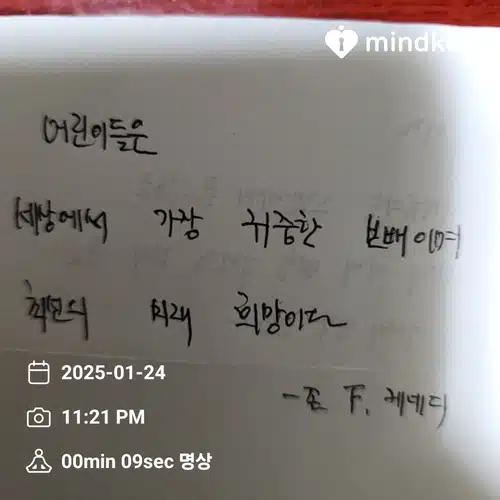 mindk
어린이들은
세상에서 가장 귀중한 보배이며
최선의 미래 희망이다
- 존 F. 케네디
2025-01-24
11:21 PM
00min 09sec 명상